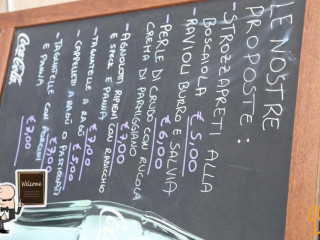 LE NOSTRE
PROPOSTE:
- STROZZAPRETI ALLA
BOSCAIOLA € 5,00
- RAVIOLI BURRO E SALVIA
€ 6,00
- PERLE DI CRUDO CON RUCOLA
CREMA DI PARMIGIANO
€ 7,00
- AGNOLOTTI RIPIENI CON RADICCHIO
E SPECK E PANNA
€ 7,00
- TAGLIATELLE A RAGÙ € 5,00
- CAPPELLETTI A RAGÙ O PASTICCIATI
€ 7,00
- TAGLIATELLE CON
E PANNA € 7,00
Coca-Cola
Welcome